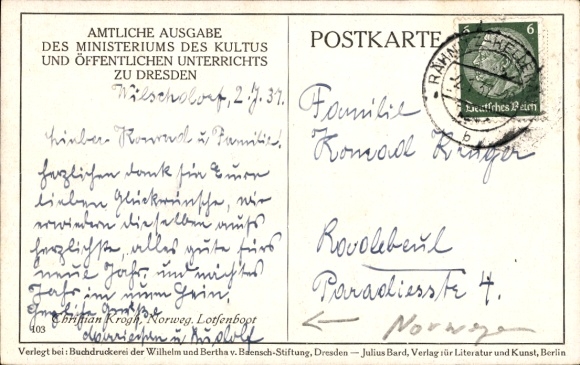 AMTLICHE AUSGABE
DES MINISTERIUMS DES KULTUS
UND ÖFFENTLICHEN UNTERRICHTS
ZU DRESDEN
Wilschdorf, 2.1.37.
Lieber Konrad u. Familie!
Herzlichen dank für Eure
lieben Glückwünsche, wir
erwiedern dieselben aufs
herzlichste, alles gute fürs
neue Jahr, im nächsten
Jahr im neuen Heim.
Herzliche Grüße
u. Rudolf
103 Christian Krogh, Norweg. Lotsenboot
POSTKARTE
6 6
Deutsches Reich
b
Familie
Konrad Krüger
Radebeul
Paradiesstr 4.
← Norwegen
Verlegt bei: Buchdruckerei der Wilhelm und Bertha v. Baensch-Stiftung, Dresden — Julius Bard, Verlag für Literatur und Kunst, Berlin